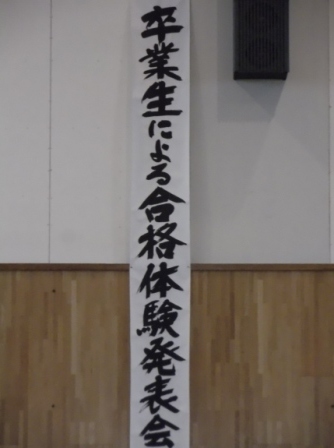 卒業生による合格体験発表会